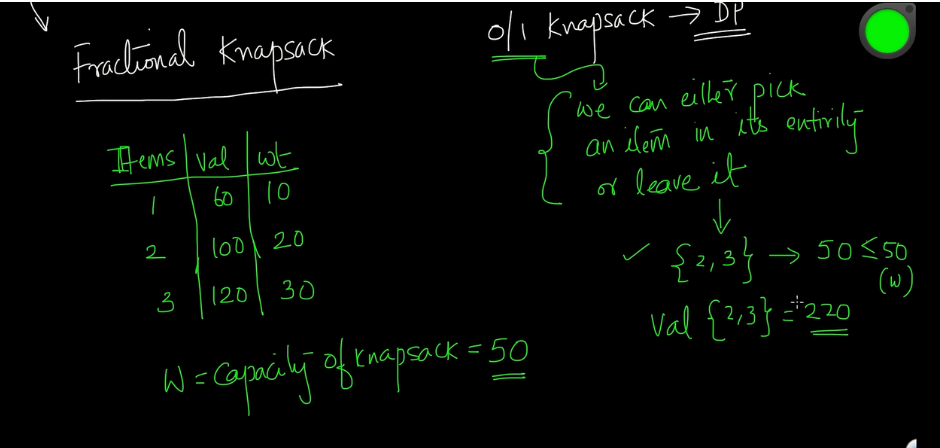 Fractional Knapsack
Items val wt
1 60 10
2 100 20
3 120 30
W = Capacity of knapsack = 50
0/1 Knapsack → DP
we can either pick
an item in its entirily
or leave it
✓ {2,3} → 50 ≤ 50
(W)
Val {2,3} = 220